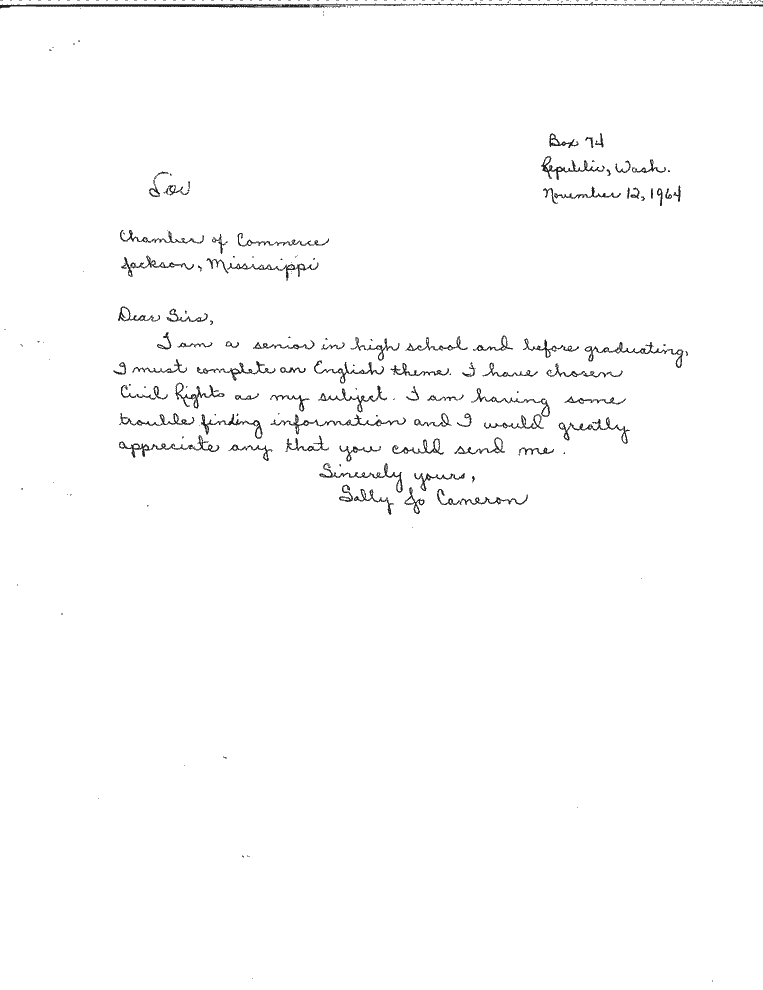 Box 74
Republic, Wash.
November 12, 1964
Sov
Chamber of Commerce
Jackson, Mississippi
Dear Sirs,
I am a senior in high school and before graduating,
I must complete an English theme. I have chosen
Civil Rights as my subject. I am having some
trouble finding information and I would greatly
appreciate any that you could send me.
Sincerely yours,
Sally Jo Cameron